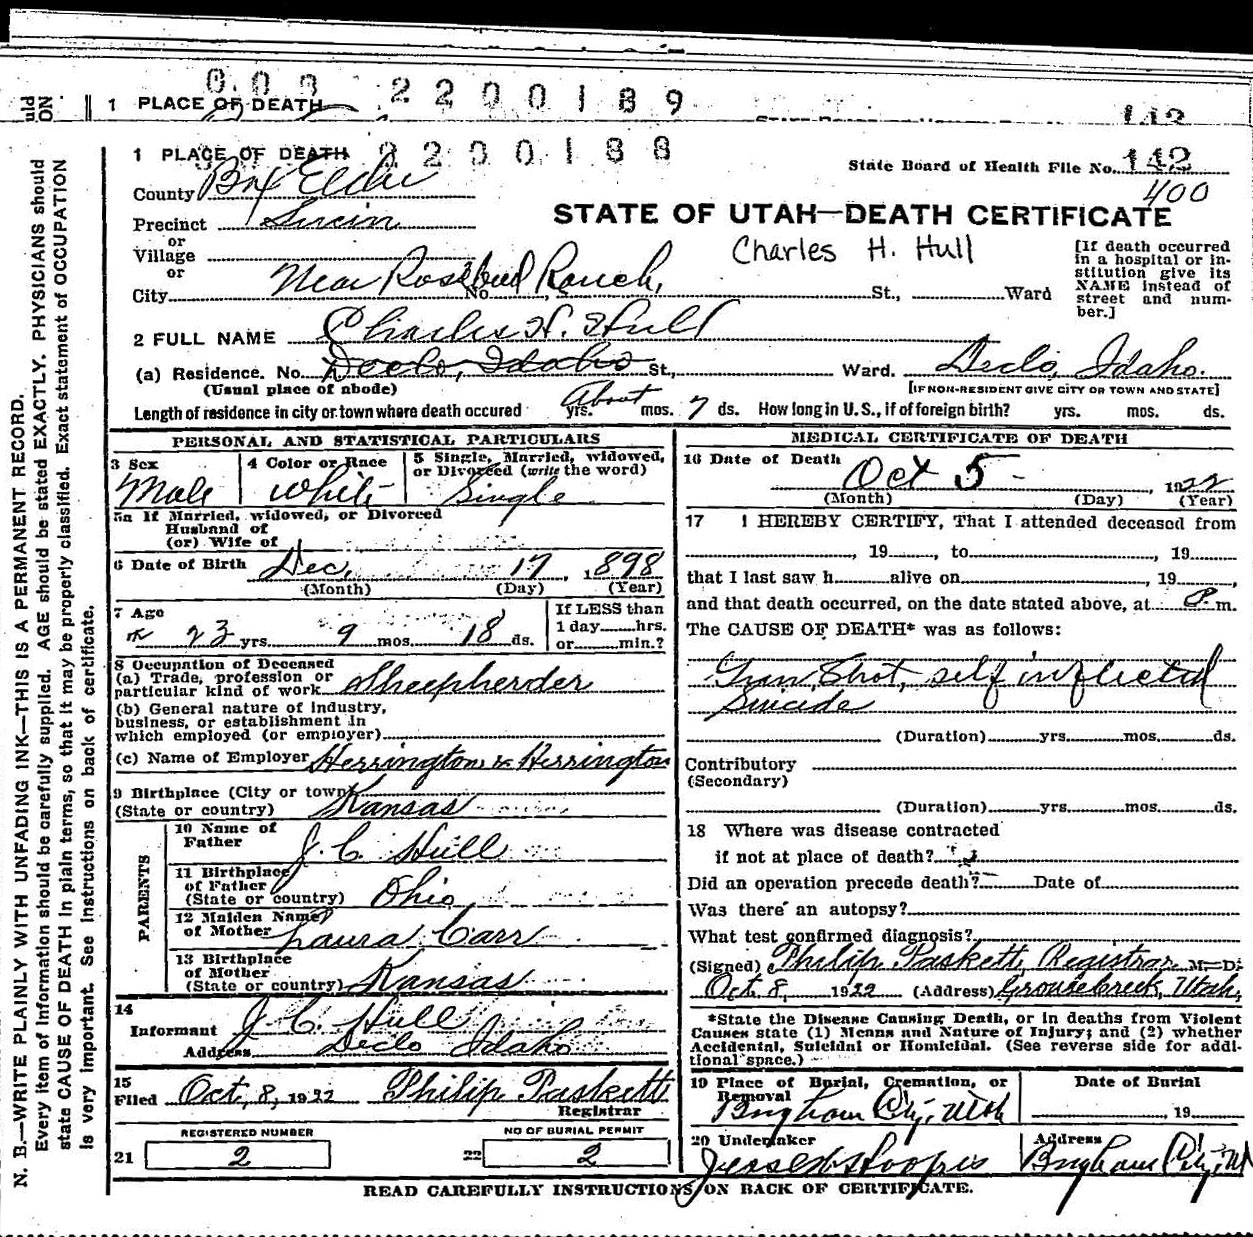 uld
ON
1 PLACE OF DEATH
003 2200189
142
1 PLACE OF DEATH
2200188
State Board of Health File No. 142
400
County Box Elder
Precinct Lucin
or
Village
or
City
Near Rosebud Ranch,
No. St., Ward
STATE OF UTAH—DEATH CERTIFICATE
Charles H. Hull
[If death occurred
in a hospital or in-
stitution give its
NAME instead of
street and num-
ber.]
2 FULL NAME Charles H. Hull
(a) Residence. No. Declo, Idaho St., Ward. Declo, Idaho.
(Usual place of abode)
[IF NON-RESIDENT GIVE CITY OR TOWN AND STATE]
Length of residence in city or town where death occured About yrs. mos. 7 ds. How long in U. S., if of foreign birth? yrs. mos. ds.
PERSONAL AND STATISTICAL PARTICULARS
3 Sex
Male
4 Color or Race
White
5 Single, Married, widowed,
or Divorced (write the word)
Single
5a If Married, widowed, or Divorced
Husband of
(or) Wife of
6 Date of Birth Dec, 17, 1898
(Month) (Day) (Year)
7 Age
23 yrs. 9 mos. 18 ds.
If LESS than
1 day hrs.
or min.?
8 Occupation of Deceased
(a) Trade, profession or
particular kind of work Sheepherder
(b) General nature of industry,
business, or establishment in
which employed (or employer)
(c) Name of Employer Herrington & Herrington
9 Birthplace (City or town)
(State or country) Kansas
PARENTS
10 Name of
Father J. C. Hull
11 Birthplace
of Father
(State or country) Ohio
12 Maiden Name
of Mother Laura Carr
13 Birthplace
of Mother
(State or country) Kansas
14
Informant J. C. Hull
Address Declo Idaho
15
Filed Oct, 8, 1922 Philip Paskett
Registrar
REGISTERED NUMBER
21 2
NO OF BURIAL PERMIT
22 2
MEDICAL CERTIFICATE OF DEATH
16 Date of Death
Oct 5 - , 1922
(Month) (Day) (Year)
17 I HEREBY CERTIFY, That I attended deceased from
, 19 , to , 19
that I last saw h alive on , 19 ,
and that death occurred, on the date stated above, at P. m.
The CAUSE OF DEATH* was as follows:
Gun Shot, self inflicted
Suicide
(Duration) yrs. mos. ds.
Contributory
(Secondary)
(Duration) yrs. mos. ds.
18 Where was disease contracted
if not at place of death?
Did an operation precede death? Date of
Was there an autopsy?
What test confirmed diagnosis?
(Signed) Philip Paskett, Registrar M. D.
Oct. 8, 1922 (Address) Grousecreek, Utah,
*State the Disease Causing Death, or in deaths from Violent
Causes state (1) Means and Nature of Injury; and (2) whether
Accidental, Suicidal or Homicidal. (See reverse side for addi-
tional space.)
19 Place of Burial, Cremation, or
Removal
Bingham City, Utah
Date of Burial
19
20 Undertaker
Address
Bingham City, Ut
READ CAREFULLY INSTRUCTIONS ON BACK OF CERTIFICATE.
N. B.—WRITE PLAINLY WITH UNFADING INK—THIS IS A PERMANENT RECORD.
Every item of information should be carefully supplied. AGE should be stated EXACTLY. PHYSICIANS should
state CAUSE OF DEATH in plain terms, so that it may be properly classified. Exact statement of OCCUPATION
is very important. See instructions on back of certificate.